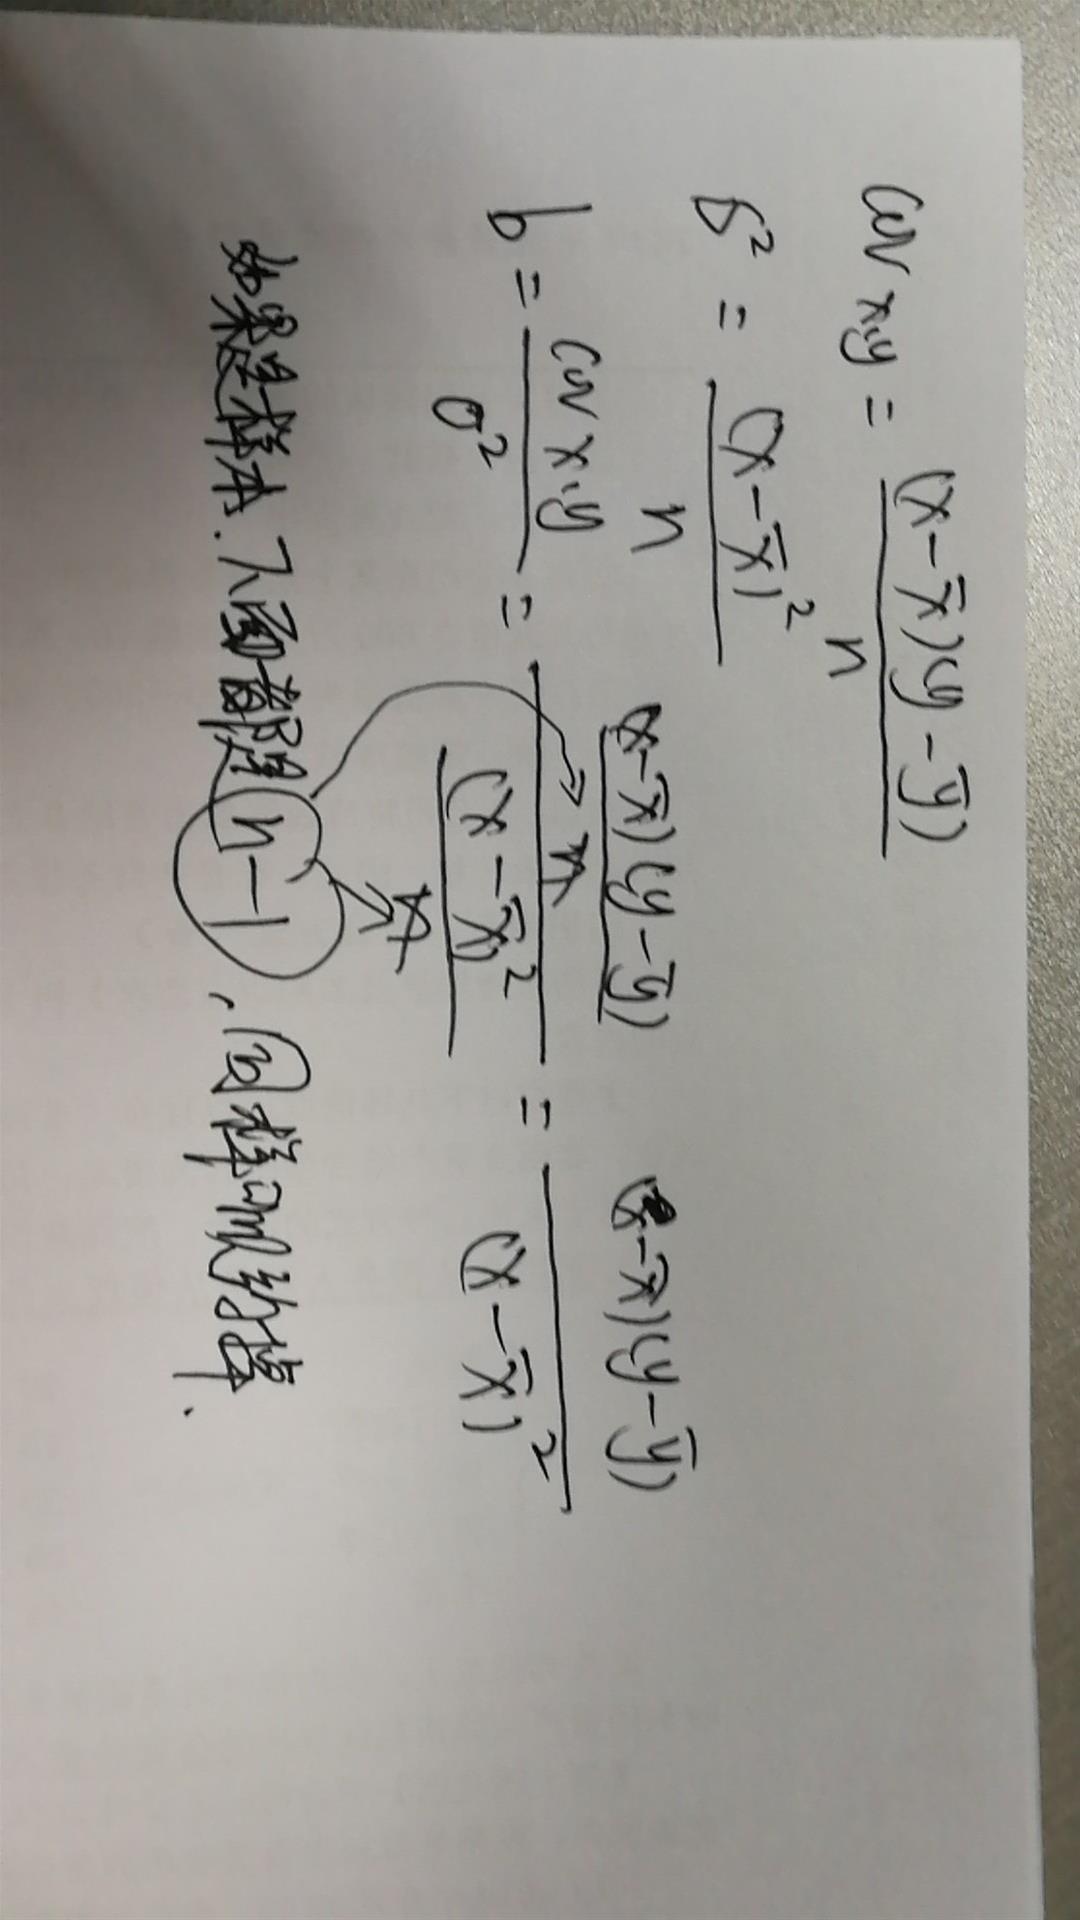 cov x,y = (x-x̄)(y-ȳ) / n
δ² = (x-x̄)² / n
b = cov x,y / σ² = (x-x̄)(y-ȳ) / n / (x-x̄)² / n = (x-x̄)(y-ȳ) / (x-x̄)²
如果是样本.人面都是 n-1 ,同样可以约掉.